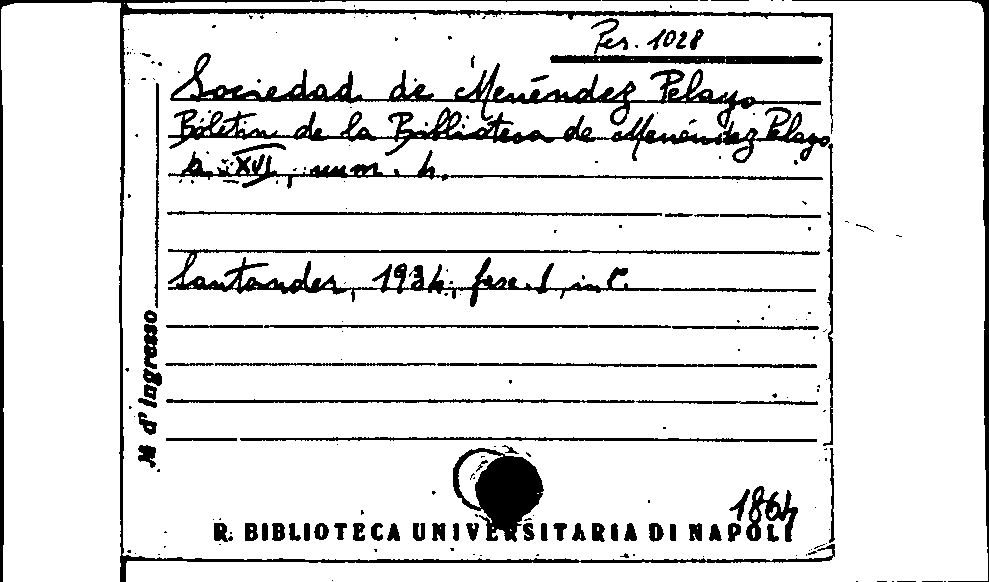 Per. 1028
Sociedad de Menéndez Pelayo
Boletin de la Biblioteca de Menéndez Pelayo
a. XVI, num. 4.
Santander, 1934, fasc. 1, in 8°.
N d' ingresso
1864
R. BIBLIOTECA UNIVERSITARIA DI NAPOLI